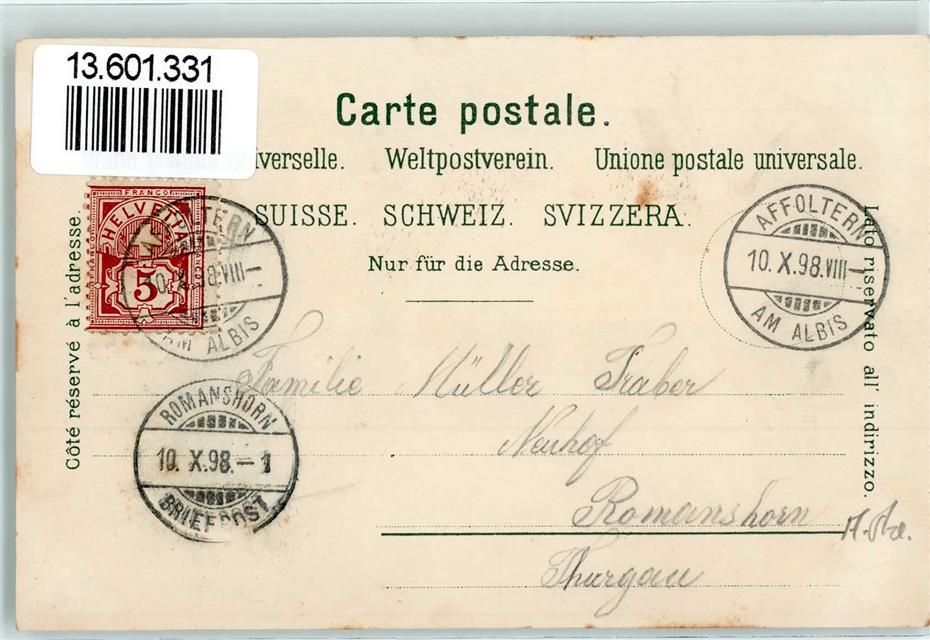 13.601.331
Carte postale.
verselle. Weltpostverein. Unione postale universale.
SUISSE. SCHWEIZ. SVIZZERA.
Nur für die Adresse.
Côté réservé à l'adresse.
Lato riservato all' indirizzo.
FRANCO
HELVETIA
FRANCO
FRANCO
5
AFFOLTERN
10. X. 98. VIII—
AM ALBIS
AFFOLTERN
10. X. 98. VIII—
AM ALBIS
ROMANSHORN
10. X. 98. — 1
BRIEFPOST
Familie Müller Traber
Neuhof
Romanshorn
Thurgau